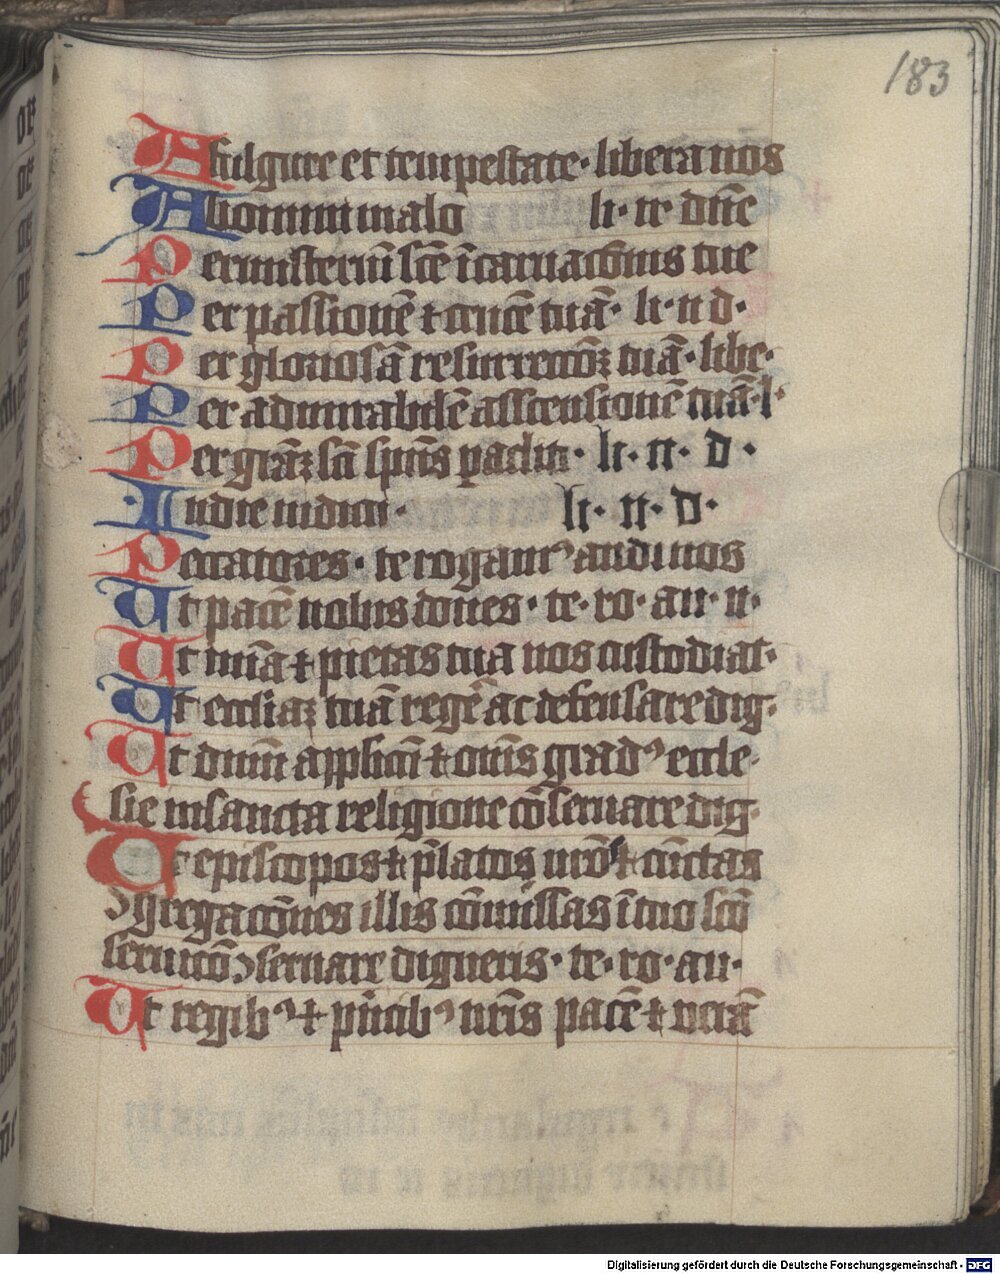 183
A fulgure et tempestate · libera nos
Ab omni malo li · n̄ dn̄e
Per misteriū sc̄e īcarnac̄onis tue
Per passionē ⁊ crucē tuā · li · n d ·
Per gloriosā resurrecc̄oꝫ tuā · libe ·
Per admirabilē assicensionē tuā · l ·
Per grāꝫ sc̄i sp̄us paclīti · li · n · d ·
In die iudicii · li · n · d ·
Peccatores · te rogamꝰ audi nos
Ut pacē nobis dones · te · ro · au · n ·
Ut mīa ⁊ pietas tua nos custodiat ·
Ut eccl̄iaꝫ tuā regē ac defensare dig ·
Ut dnm̄ applicū ⁊ om̄s gradꝰ eccle
sie in sancta religione cōseruare dig ·
Ut episcopos ⁊ p̄latos nr̄os ⁊ cūctas
ↄgregac̄ones illis cōmissas ī tuo sc̄o
seruicō ↄseruare digneris · te · ro · au ·
Ut regibꝰ ⁊ p̄ncibꝰ nr̄is pacē ⁊ vc̄iā
Digitalisierung gefördert durch die Deutsche Forschungsgemeinschaft - DFG